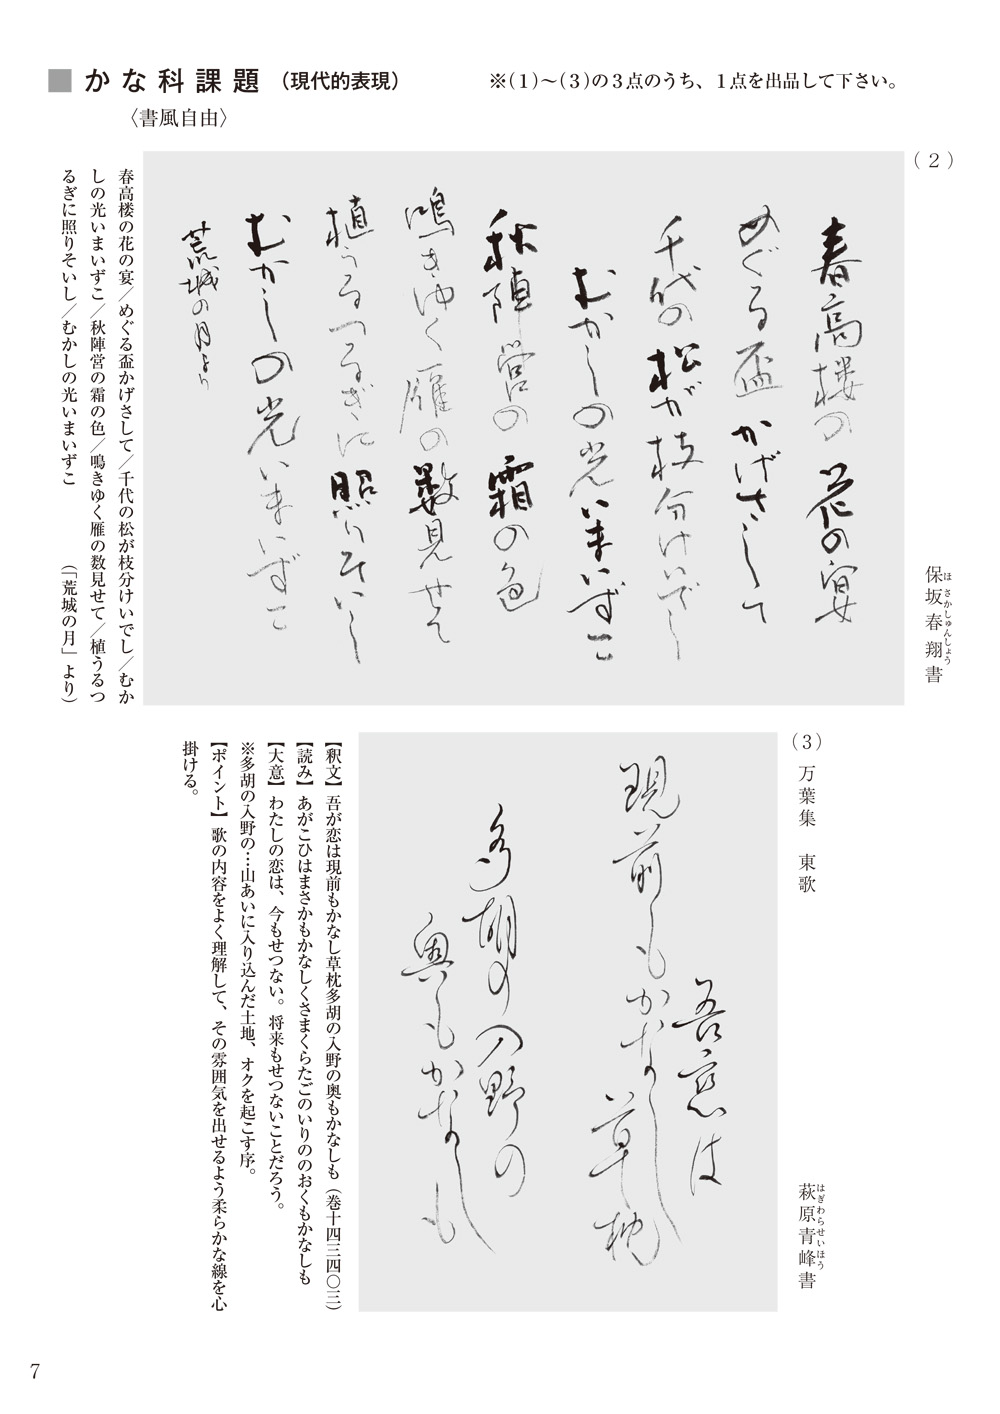 ■ かな科課題（現代的表現）
※（1）～（3）の３点のうち、１点を出品して下さい。
〈書風自由〉
（２）
保坂春翔書
ほさかしゅんしょう
春高楼の花の宴
めぐる盃かげさして
千代の松が枝分けいでし
むかしの光いまいずこ
秋陣営の霜の色
鳴きゆく雁の数見せて
植うるつるぎに照りそいし
むかしの光いまいずこ
荒城の月より
春高楼の花の宴／めぐる盃かげさして／千代の松が枝分けいでし／むか
しの光いまいずこ／秋陣営の霜の色／鳴きゆく雁の数見せて／植うるつ
るぎに照りそいし／むかしの光いまいずこ　　　（「荒城の月」より）
（3）
万葉集　東歌
萩原青峰書
はぎわらせいほう
吾恋は
現前もかなし草枕
多胡の入野の
奥もかなしも
【釈文】吾が恋は現前もかなし草枕多胡の入野の奥もかなしも（巻十四三四〇三）
【読み】あがこひはまさかもかなしくさまくらたごのいりののおくもかなしも
【大意】わたしの恋は、今もせつない。将来もせつないことだろう。
※多胡の入野の…山あいに入り込んだ土地、オクを起こす序。
【ポイント】歌の内容をよく理解して、その雰囲気を出せるよう柔らかな線を心
掛ける。
7